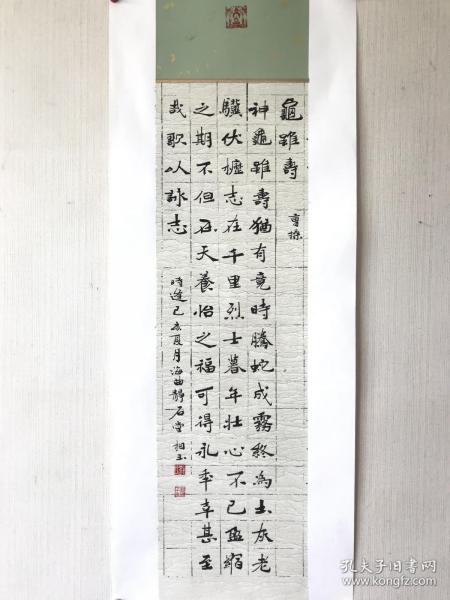 龜雖壽
曹操
神龜雖壽猶有竟時騰蛇成霧終為土灰老
驥伏櫪志在千里烈士暮年壯心不已盈縮
之期不但在天養怡之福可得永年幸甚至
哉歌以詠志
時逢己亥夏月海曲靜石堂相玉
孔夫子旧书网